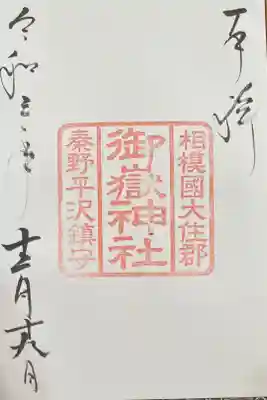 奉拝
相模國大住郡
御嶽神社
秦野平沢鎮守
令和三年
十二月 日